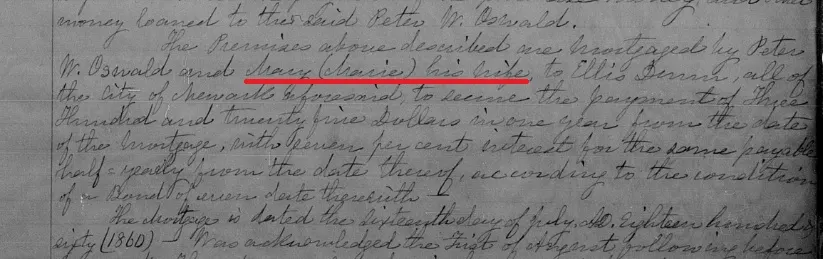 money loaned to the said Peter W. Oswald.
The Premises above described are mortgaged by Peter
W. Oswald and Mary (Marie) his wife, to Ellis Dunn, all of
the City of Newark aforesaid, to secure the payment of Three
Hundred and twenty five Dollars in one year from the date
of the mortgage, with seven per cent interest for the same payable
half=yearly from the date thereof, according to the condition
of a Bond of even date therewith —
The Mortgage is dated the Sixteenth day of July. AD. Eighteen hundred &
sixty (1860) — Was acknowledged the First of August, following before